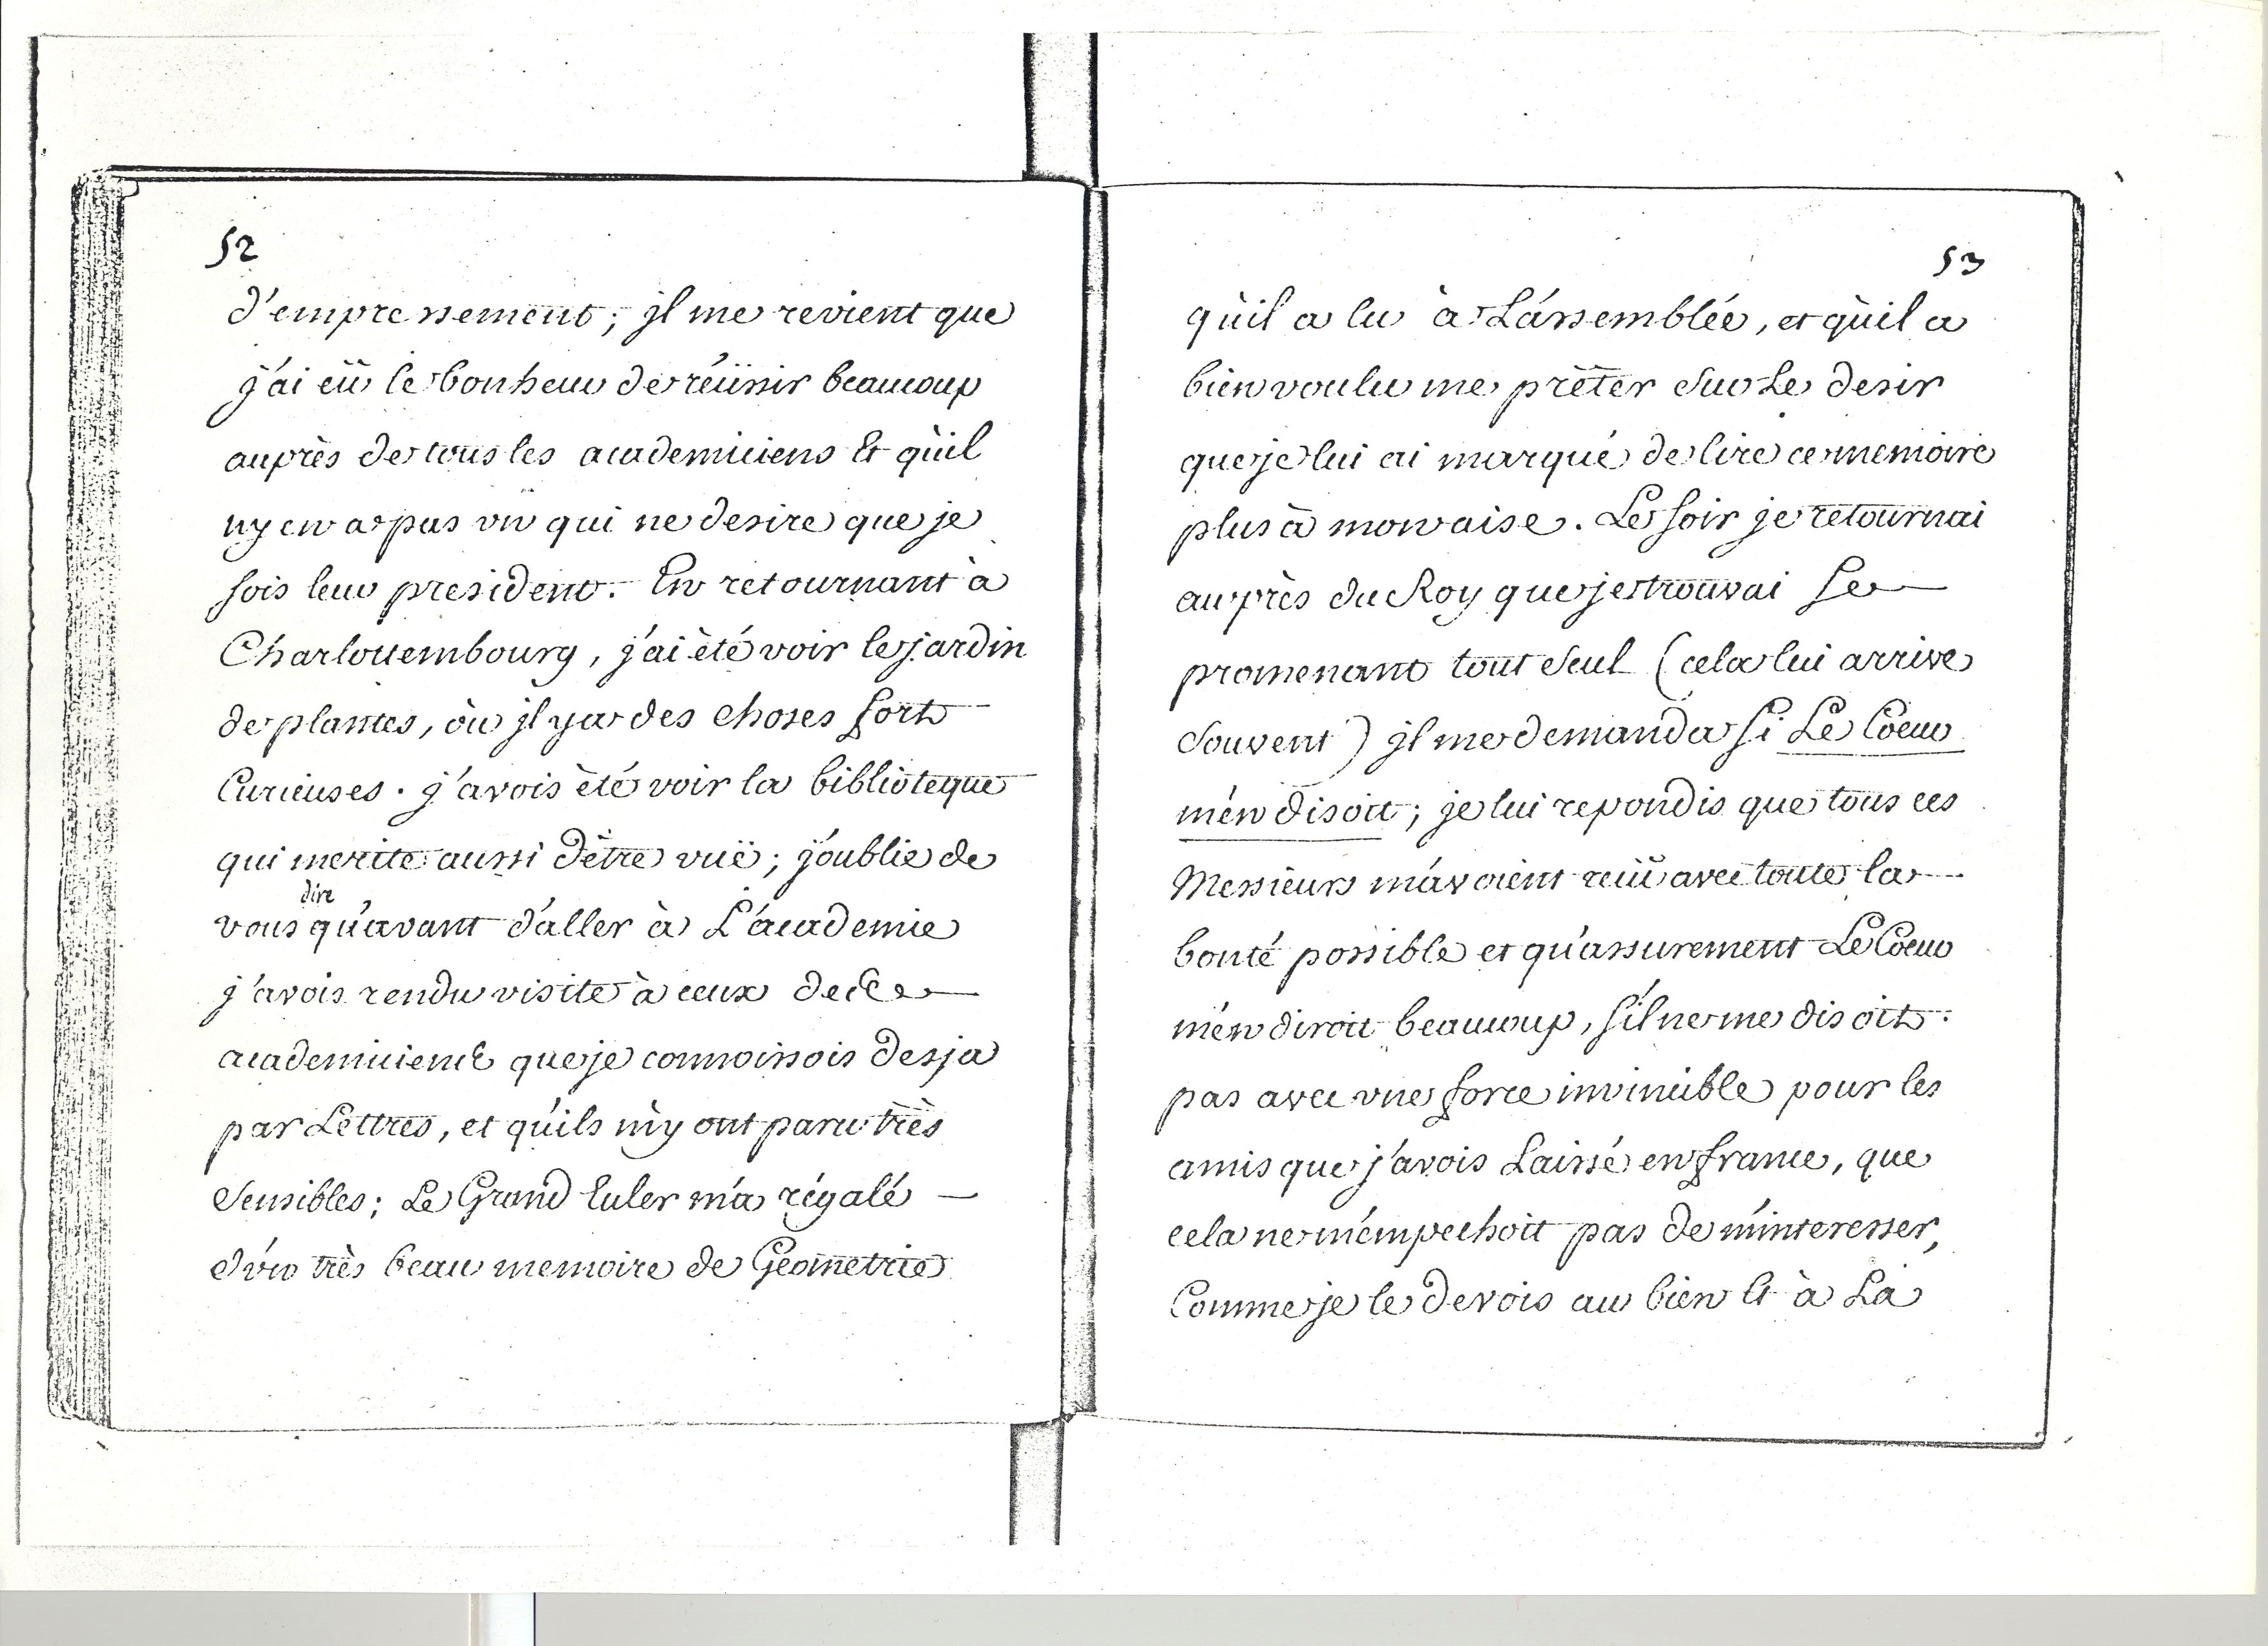 52
d'empressement; jl me revient que
j'ai eü le bonheur de réüssir beaucoup
auprès de tous les academiciens Et qu'il
ny en a pas vn qui ne desire que je
sois leur president. En retournant à
Charlottembourg, j'ai èté voir le jardin
de plantes, où jl y a des choses fort
Curieuses. j'avois èté voir la biblioteque
qui merite aussi d'ètre vuë; j'oublie de
dire
vous qu'avant d'aller à L'academie
j'avois rendu visite à ceux de ce
academiciens que je connoissois desja
par Lettres, et qu'ils m'y ont paru très
Sensibles; Le Grand Euler m'a régalé —
d'vn très beau memoire de Géometrie
53
qu'il a lu à L'assemblée, et qu'il a
bien voulu me prèter sur Le desir
que je lui ai marqué de lire ce memoire
plus à mon aise. Le soir je retournai
auprès du Roy que je trouvai se —
promenant tout seul (cela lui arrive
souvent) jl me demanda si Le Coeur
m'en disoit; je lui repondis que tous ces
Messieurs m'avoient reçü avec toute la —
bonté possible et qu'assurement Le Coeur
m'en diroit beaucoup, s'il ne me disoit
pas avec vne force invincible pour les
amis que j'avois Laissé en france, que
cela ne m'empechoit pas de m'interesser,
Comme je le devois au bien Et à La